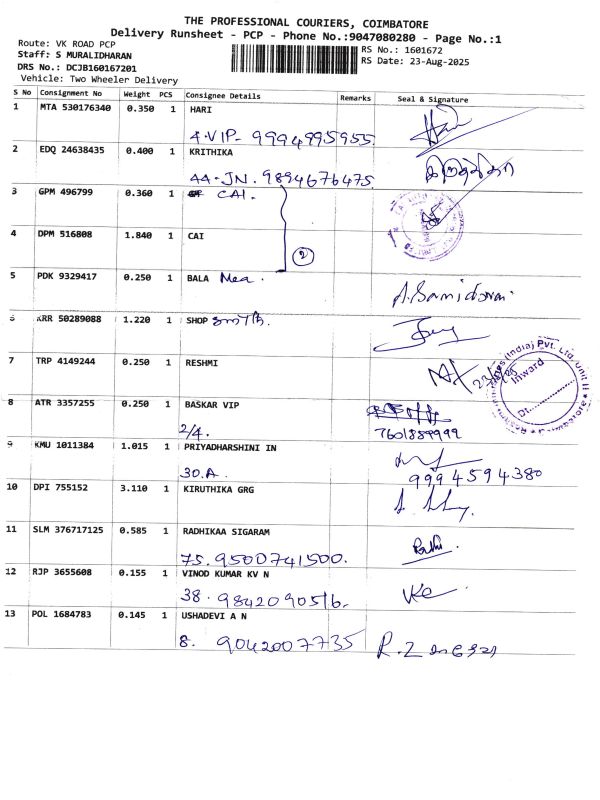 THE PROFESSIONAL COURIERS, COIMBATORE
Delivery Runsheet - PCP - Phone No.:9047080280 - Page No.:1
Route: VK ROAD PCP
Staff: S MURALIDHARAN
DRS No.: DCJB160167201
Vehicle: Two Wheeler Delivery
RS No.: 1601672
RS Date: 23-Aug-2025
S No Consignment No Weight PCS Consignee Details Remarks Seal & Signature
1 MTA 530176340 0.350 1 HARI
4.VIP- 9994995955
2 EDQ 24638435 0.400 1 KRITHIKA
AA-JN. 9894676475
3 GPM 496799 0.360 1 CAI.
4 DPM 516808 1.840 1 CAI
2
5 PDK 9329417 0.250 1 BALA
6 KRR 50289088 1.220 1 SHOP SmTh.
7 TRP 4149244 0.250 1 RESHMI
(India) Pvt. Ltd. Unit II
Inward
Dt.
8 ATR 3357255 0.250 1 BASKAR VIP
2/4. 7601889999
9 KMU 1011384 1.015 1 PRIYADHARSHINI IN
30.A. 9994594380
10 DPI 755152 3.110 1 KIRUTHIKA GRG
11 SLM 376717125 0.585 1 RADHIKAA SIGARAM
75. 9500741500. Radhi.
12 RJP 3655608 0.155 1 VINOD KUMAR KV N
38. 9842090516.
13 POL 1684783 0.145 1 USHADEVI A N
8. 9042007735